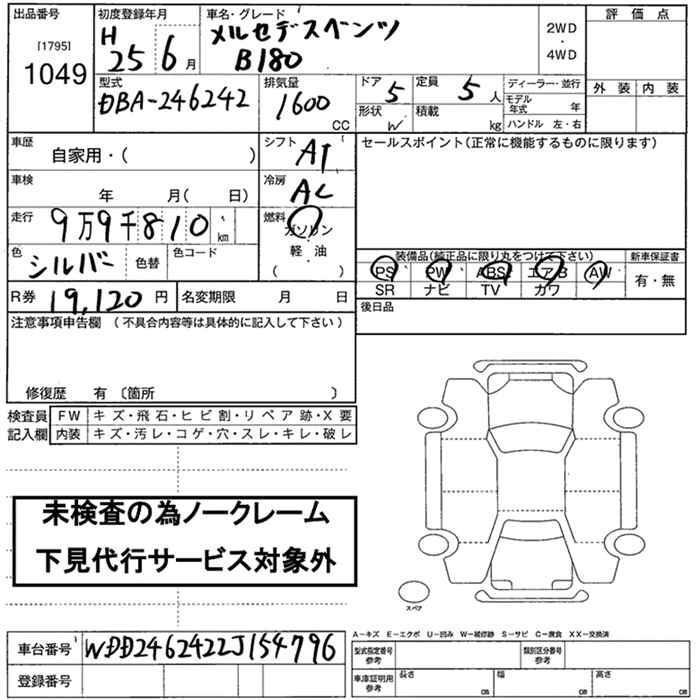 出品番号 初度登録年月 車名・グレード 評価点
[1795] H メルセデスベンツ 2WD
1049 25 6月 B180 ・
4WD
型式 排気量 ドア 5 定員 5人 ディーラー・並行 外装 内装
DBA-246242 1600 CC 形状 W 積載 kg モデル年式 年
ハンドル 左・右
車歴 シフト セールスポイント(正常に機能するものに限ります)
自家用・( ) AT
車検 冷房
年 月( 日) AC
走行 燃料
9万9千810 km ガソリン
色 シルバー 色替 色コード 軽・油 装備品(純正品に限り丸をつけて下さい) 新車保証書
( ) PS PW ABS エアB AW 有・無
SR ナビ TV カワ
R券 19,120円 名変期限 月 日 後日品
注意事項申告欄 (不具合内容等は具体的に記入して下さい)
修復歴 有 〔箇所 〕
検査員 FW キズ・飛石・ヒビ割・リペア跡・X要
記入欄 内装 キズ・汚レ・コゲ・穴・スレ・キレ・破レ
未検査の為ノークレーム
下見代行サービス対象外
スペア
A-キズ E-エクボ U-凹み W-補修跡 S-サビ C-腐食 XX-交換済
車台番号 WDD2462422J154796 型式指定番号 参考 類別区分番号 参考
登録番号 車庫証明用 参考 長さ cm 幅 cm 高さ cm